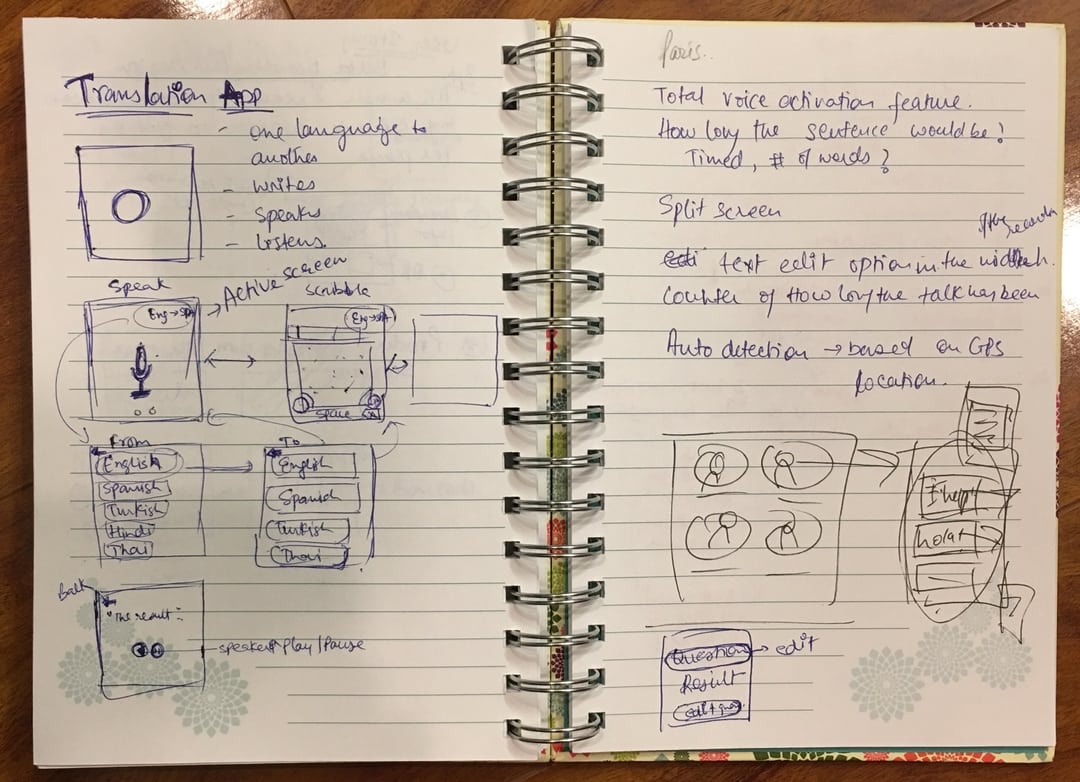 Translation App
- one language to
another
- writes
- speaks
- listens.
Speak
→ Active screen
Scribble
Eng→
Eng→
space
From
English
Spanish
Turkish
Hindi
Thai
To
English
Spanish
Turkish
Thai
Back
"The result"
speaker Play/Pause
Paris..
Total voice activation feature.
How long the sentence would be?
Timed, # of words?
Split screen
text edit option in the
Counter of How long the talk has been
Auto detection → based on GPS
location.
Question → edit
Result